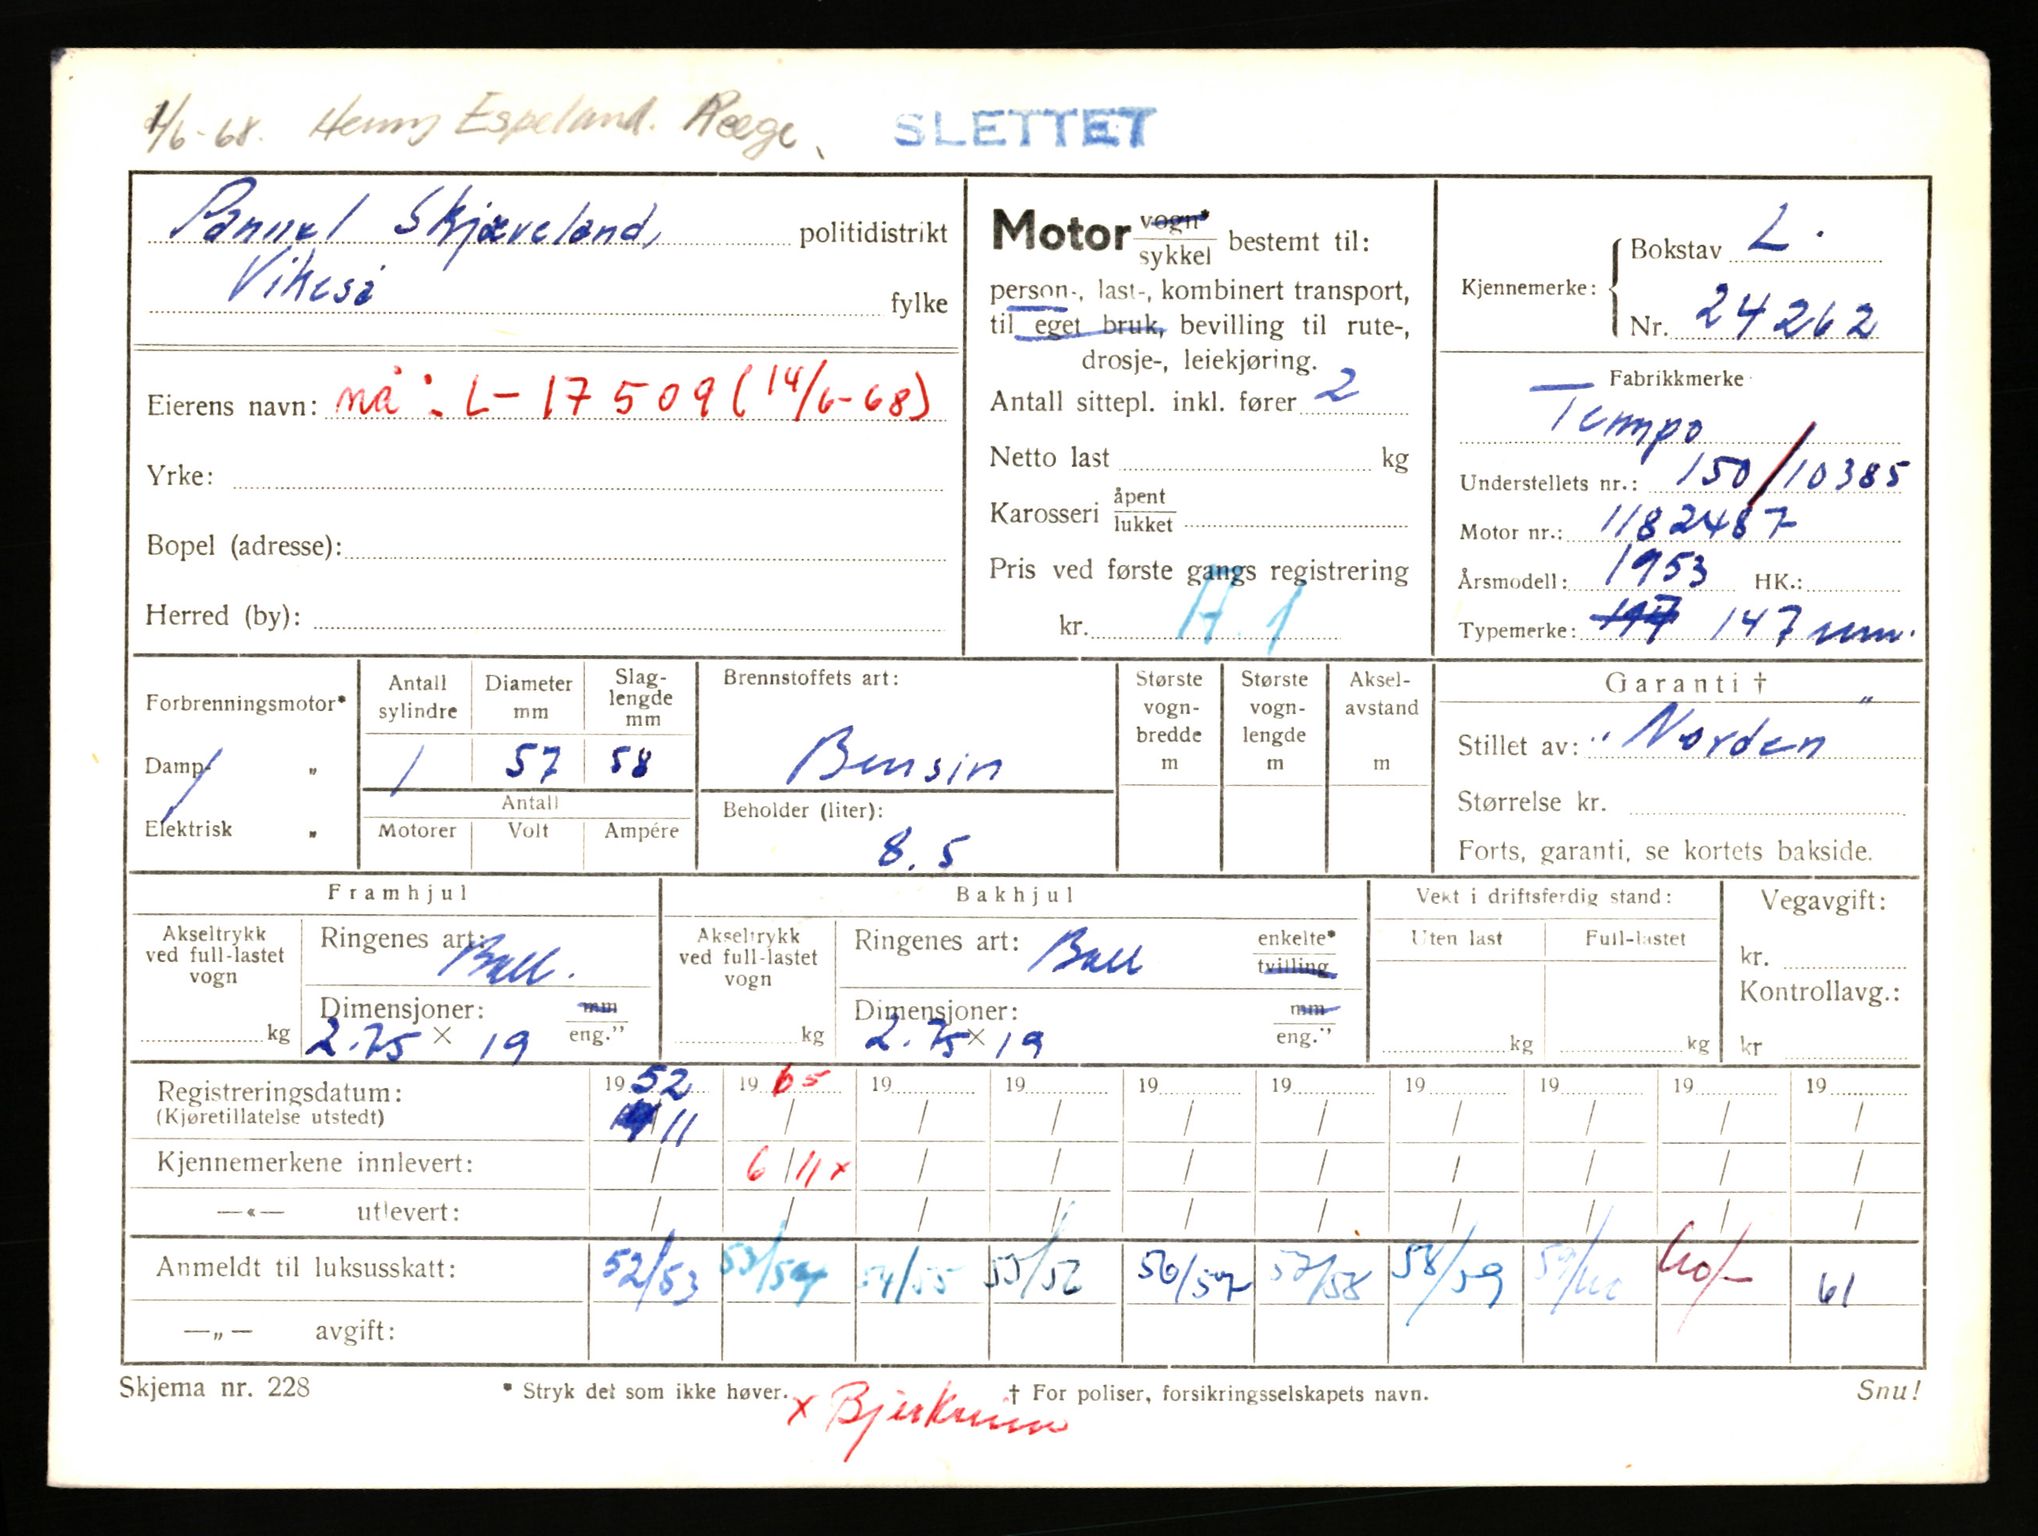 1/6-68. Henny Espeland. Ræge. SLETTET
Skjæveland, politidistrikt
Vikeså fylke
Eierens navn: nå: L-17509 (14/6-68)
Yrke:
Bopel (adresse):
Herred (by):
Motor vogn* / sykkel bestemt til:
person-, last-, kombinert transport,
til eget bruk, bevilling til rute-,
drosje-, leiekjøring.
Antall sittepl. inkl. fører 2
Netto last kg
Karosseri åpent / lukket
Pris ved første gangs registrering
kr. A.1
Kjennemerke: Bokstav L.
Nr. 24262
Fabrikkmerke
Tempo
Understellets nr.: 150/10385
Motor nr.: 1182487
Årsmodell: 1953 HK.:
Typemerke: 147 mm.
Forbrenningsmotor*
Damp- "
Elektrisk "
Antall sylindre Diameter mm Slag-lengde mm
1 57 58
Antall
Motorer Volt Ampére
Brennstoffets art:
Bensin
Beholder (liter):
8.5
Største vogn-bredde m
Største vogn-lengde m
Aksel-avstand m
Garanti †
Stillet av: "Norden"
Størrelse kr.
Forts, garanti, se kortets bakside.
Framhjul
Akseltrykk ved full-lastet vogn kg
Ringenes art: Ball.
Dimensjoner: mm / eng."
2.75 × 19
Bakhjul
Akseltrykk ved full-lastet vogn kg
Ringenes art: Ball enkelte* / tvilling
Dimensjoner: mm / eng."
2.75 × 19
Vekt i driftsferdig stand:
Uten last Full-lastet
kg kg
Vegavgift:
kr.
Kontrollavg.:
kr
Registreringsdatum: 1952 1965 19 19 19 19 19 19 19 19
(Kjøretillatelse utstedt) /11 / / / / / / / / /
Kjennemerkene innlevert: / 6/11 x / / / / / / / /
—«— utlevert: / / / / / / / / / /
Anmeldt til luksusskatt: 52/53 53/54 54/55 55/56 56/57 57/58 58/59 59/60 60/- 61
—„— avgift:
Skjema nr. 228 * Stryk det som ikke høver. † For poliser, forsikringsselskapets navn. Snu!
x Bjerkreim